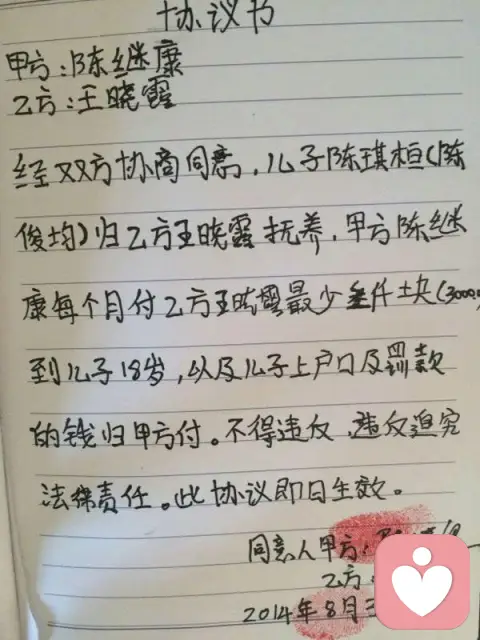 协议书
甲方:陈继康
乙方:王晓霞
经双方协商同意,儿子陈琪桓(陈
俊均)归乙方王晓霞抚养,甲方陈继
康每个月付乙方王晓霞最少叁仟块(3000
到儿子18岁,以及儿子上户口及罚款
的钱归甲方付。不得违反,违反追究
法律责任。此协议即日生效。
同意人甲方:
乙方:
2014年8月